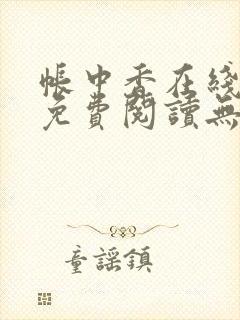 帳中香在綫
免費閱讀無
童謠鎮